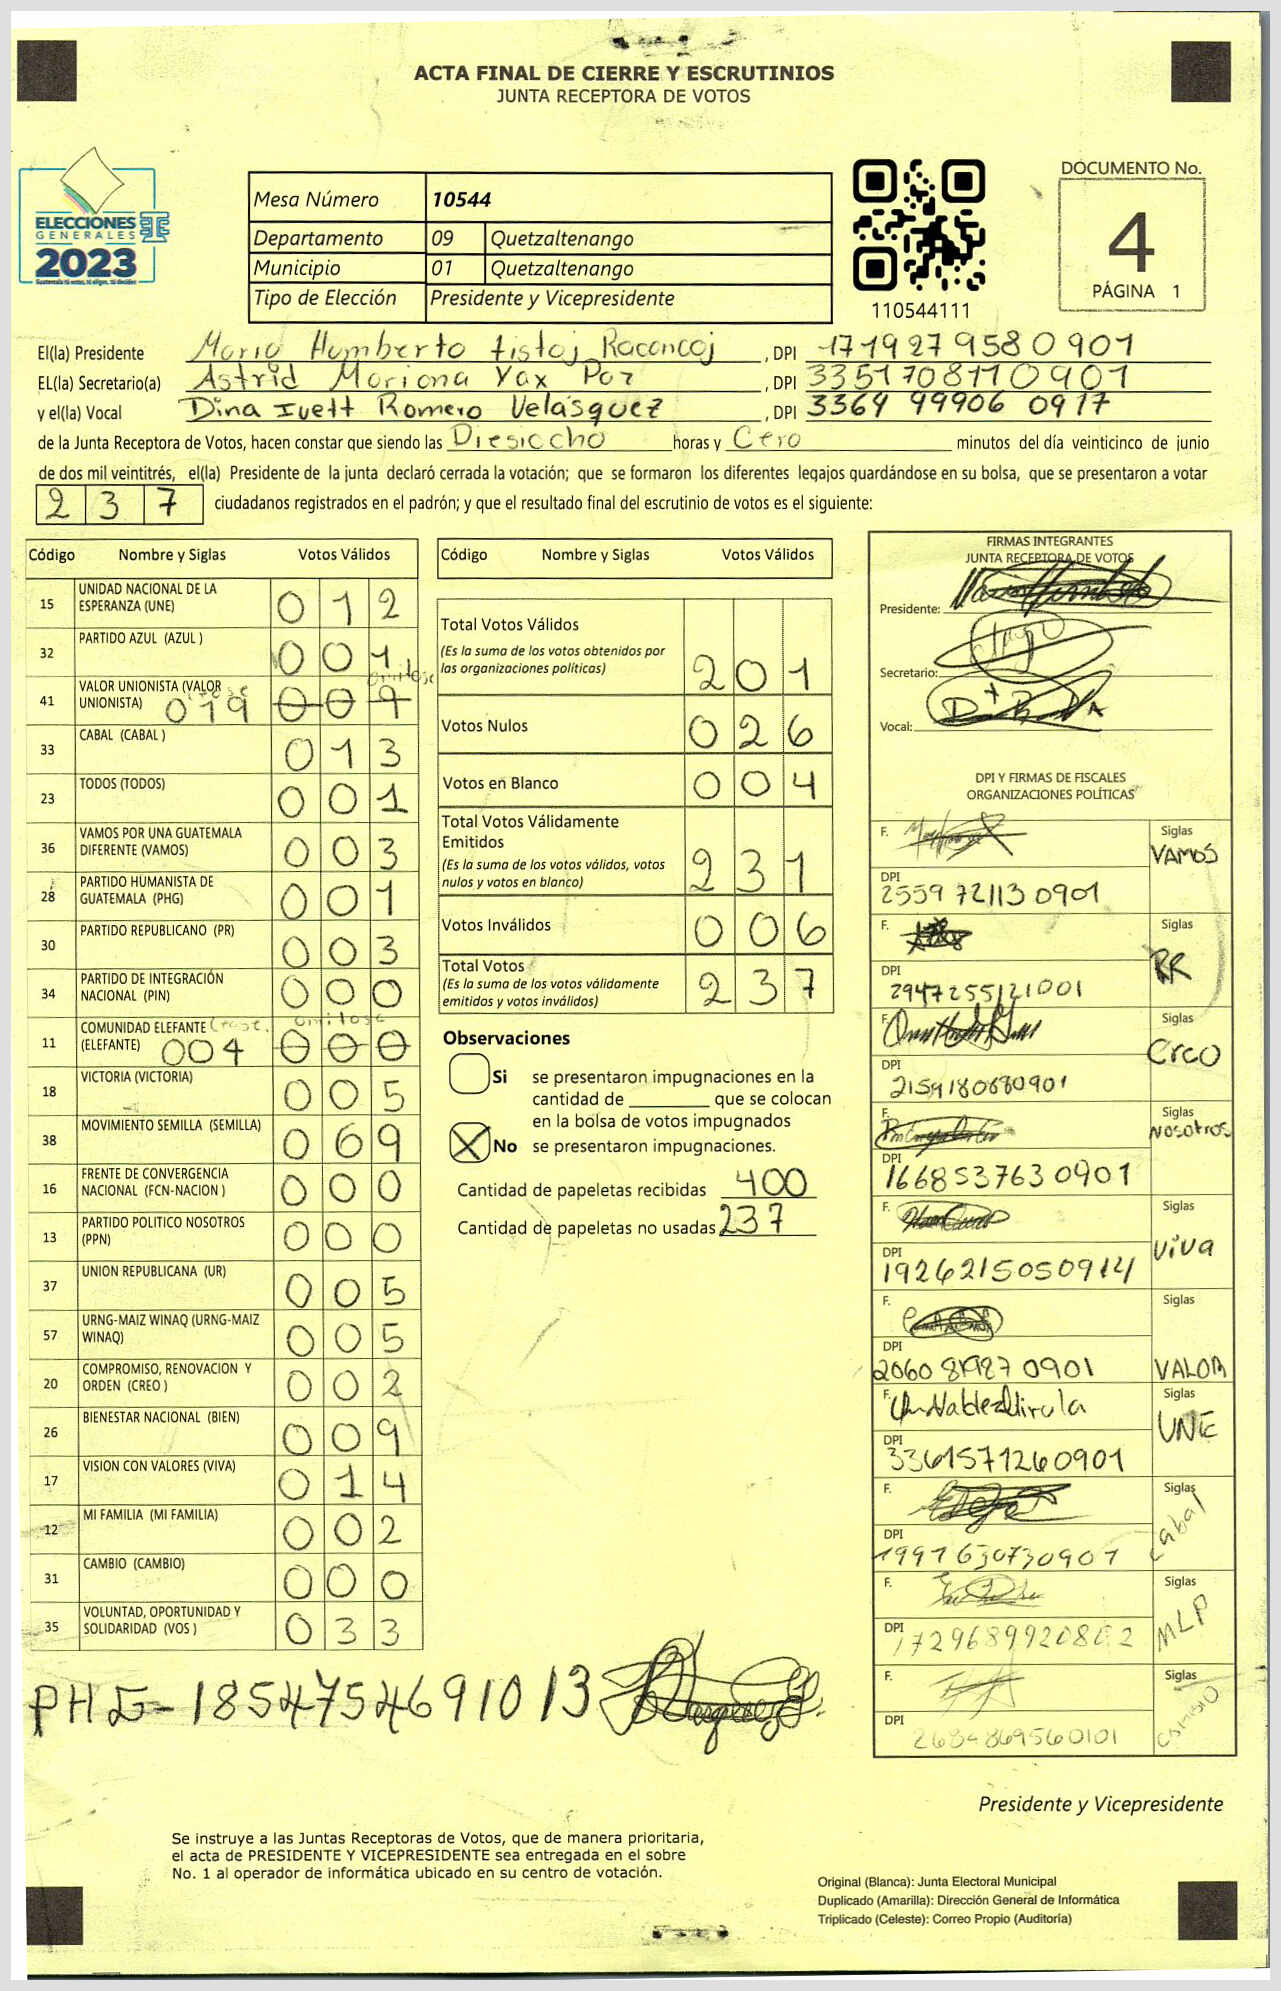 ACTA FINAL DE CIERRE Y ESCRUTINIOS
JUNTA RECEPTORA DE VOTOS
ELECCIONES
GENERALES
2023
Mesa Número 10544
Departamento 09 Quetzaltenango
Municipio 01 Quetzaltenango
Tipo de Elección Presidente y Vicepresidente
110544111
DOCUMENTO No.
4
PÁGINA 1
El(la) Presidente Mario Humberto tistoj Racancoj , DPI 1719279580901
EL(la) Secretario(a) Astrid Mariana Yax Poz , DPI 3351708110901
y el(la) Vocal Dina Ivett Romero Velásquez , DPI 3364 99906 0917
de la Junta Receptora de Votos, hacen constar que siendo las Diesiocho horas y Cero minutos del día veinticinco de junio
de dos mil veintitrés, el(la) Presidente de la junta declaró cerrada la votación; que se formaron los diferentes legajos guardándose en su bolsa, que se presentaron a votar
237 ciudadanos registrados en el padrón; y que el resultado final del escrutinio de votos es el siguiente:
Código Nombre y Siglas Votos Válidos
15 UNIDAD NACIONAL DE LA ESPERANZA (UNE) 012
32 PARTIDO AZUL (AZUL ) 001
41 VALOR UNIONISTA (VALOR UNIONISTA) 019 009 omitose
33 CABAL (CABAL ) 013
23 TODOS (TODOS) 001
36 VAMOS POR UNA GUATEMALA DIFERENTE (VAMOS) 003
28 PARTIDO HUMANISTA DE GUATEMALA (PHG) 001
30 PARTIDO REPUBLICANO (PR) 003
34 PARTIDO DE INTEGRACIÓN NACIONAL (PIN) 000
11 COMUNIDAD ELEFANTE (ELEFANTE) 004 000 omitose
18 VICTORIA (VICTORIA) 005
38 MOVIMIENTO SEMILLA (SEMILLA) 069
16 FRENTE DE CONVERGENCIA NACIONAL (FCN-NACION ) 000
13 PARTIDO POLITICO NOSOTROS (PPN) 000
37 UNION REPUBLICANA (UR) 005
57 URNG-MAIZ WINAQ (URNG-MAIZ WINAQ) 005
20 COMPROMISO, RENOVACION Y ORDEN (CREO ) 002
26 BIENESTAR NACIONAL (BIEN) 009
17 VISION CON VALORES (VIVA) 014
12 MI FAMILIA (MI FAMILIA) 002
31 CAMBIO (CAMBIO) 000
35 VOLUNTAD, OPORTUNIDAD Y SOLIDARIDAD (VOS ) 033
Código Nombre y Siglas Votos Válidos
Total Votos Válidos
(Es la suma de los votos obtenidos por
las organizaciones políticas) 201
Votos Nulos 026
Votos en Blanco 004
Total Votos Válidamente
Emitidos
(Es la suma de los votos válidos, votos
nulos y votos en blanco) 231
Votos Inválidos 006
Total Votos
(Es la suma de los votos válidamente
emitidos y votos inválidos) 237
Observaciones
Si se presentaron impugnaciones en la
cantidad de ________ que se colocan
en la bolsa de votos impugnados
No se presentaron impugnaciones.
Cantidad de papeletas recibidas 400
Cantidad de papeletas no usadas 237
FIRMAS INTEGRANTES
JUNTA RECEPTORA DE VOTOS
Presidente:
Secretario:
Vocal:
DPI Y FIRMAS DE FISCALES
ORGANIZACIONES POLÍTICAS
F. Siglas VAMOS
DPI 2559 72113 0901
F. Siglas PR
DPI 2947255121001
F. Siglas Creo
DPI 2159180680901
F. Siglas NOSOTROS
DPI 1668537630901
F. Siglas Viva
DPI 1926215050914
F. Siglas VALOR
DPI 2060 81927 0901
F. Siglas UNE
DPI 3361571260901
F. Siglas Cabal
DPI 1991630730901
F. Siglas MLP
DPI 1729689920802
F. Siglas
DPI 2684869560101
PHG-1854754691013
Presidente y Vicepresidente
Se instruye a las Juntas Receptoras de Votos, que de manera prioritaria,
el acta de PRESIDENTE Y VICEPRESIDENTE sea entregada en el sobre
No. 1 al operador de informática ubicado en su centro de votación.
Original (Blanca): Junta Electoral Municipal
Duplicado (Amarilla): Dirección General de Informática
Triplicado (Celeste): Correo Propio (Auditoría)